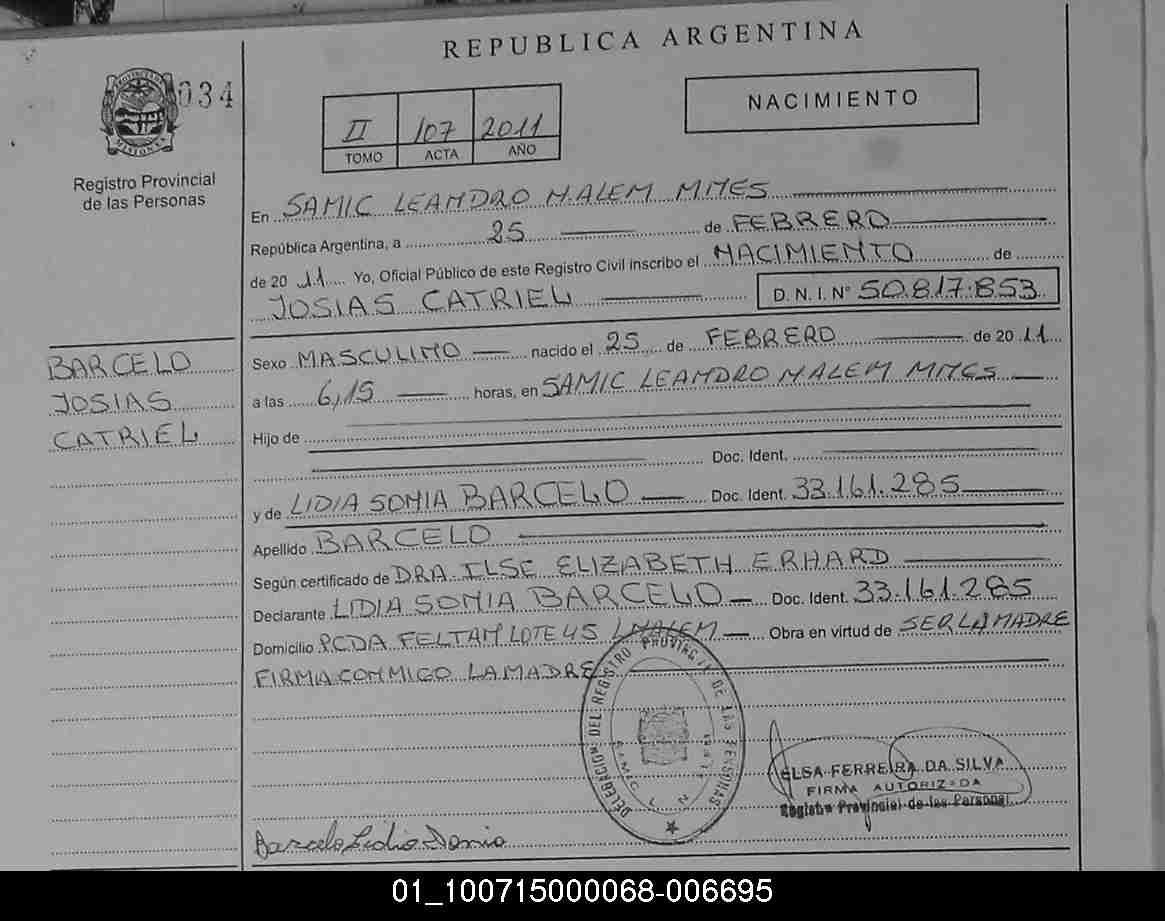 REPUBLICA ARGENTINA
034
PROVINCIA DE
MISIONES
Registro Provincial
de las Personas
II 107 2011
TOMO ACTA AÑO
NACIMIENTO
En SAMIC LEANDRO N. ALEM MNES
República Argentina, a 25 de FEBRERO
de 20 11 Yo, Oficial Público de este Registro Civil inscribo el NACIMIENTO de
JOSIAS CATRIEL D. N. I. Nº 50.817.853
BARCELO
JOSIAS
CATRIEL
Sexo MASCULINO nacido el 25 de FEBRERO de 20 11
a las 6,15 horas, en SAMIC LEANDRO N ALEM MNES
Hijo de
Doc. Ident.
y de LIDIA SONIA BARCELO Doc. Ident. 33.161.285
Apellido BARCELO
Según certificado de DRA. ILSE ELIZABETH ERHARD
Declarante LIDIA SONIA BARCELO Doc. Ident. 33.161.285
Domicilio PCDA FELTAN LOTE 45 LNALEM Obra en virtud de SER LA MADRE
FIRMA CONMIGO LA MADRE
DELEGACION DEL REGISTRO PROVINCIAL DE LAS PERSONAS
SAMIC L N
ELSA FERREIRA DA SILVA
FIRMA AUTORIZADA
Registro Provincial de las Personas
Barcelo Lidia Sonia
01_100715000068-006695